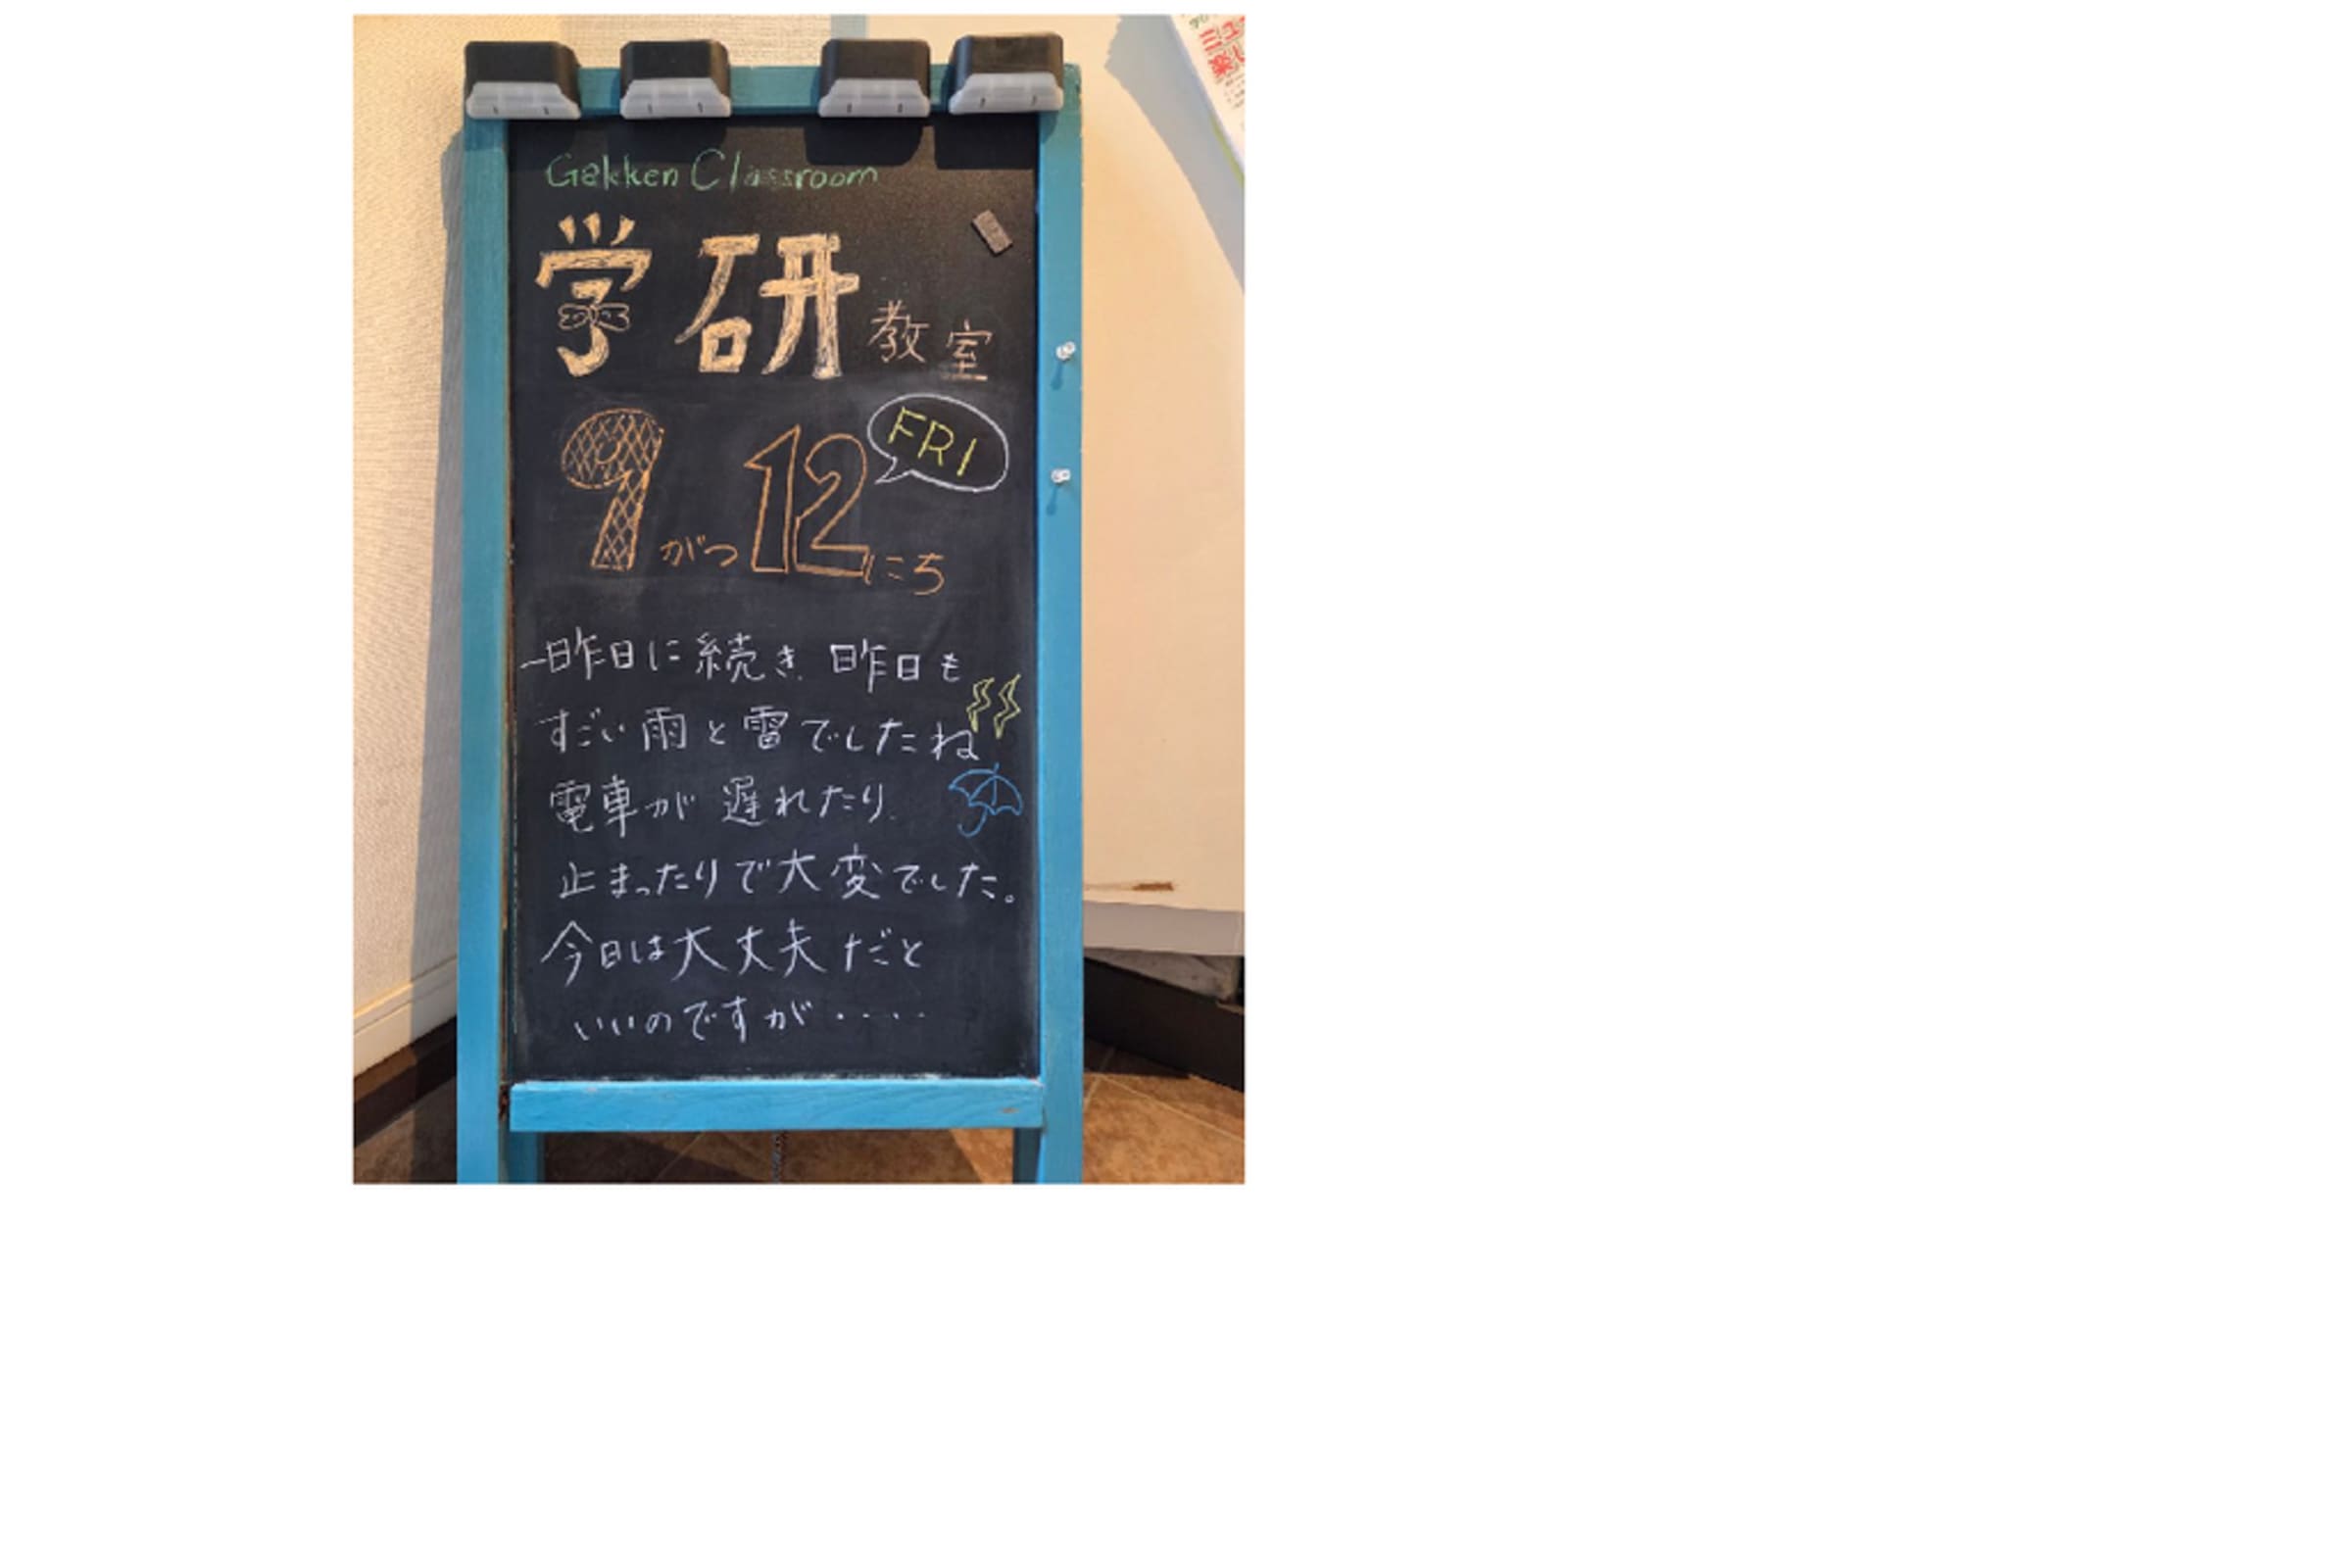 Gakken Classroom
学研教室
9がつ12にち
FRI
一昨日に続き、昨日も
すごい雨と雷でしたね
電車が遅れたり、
止まったりで大変でした。
今日は大丈夫だと
いいのですが・・・・